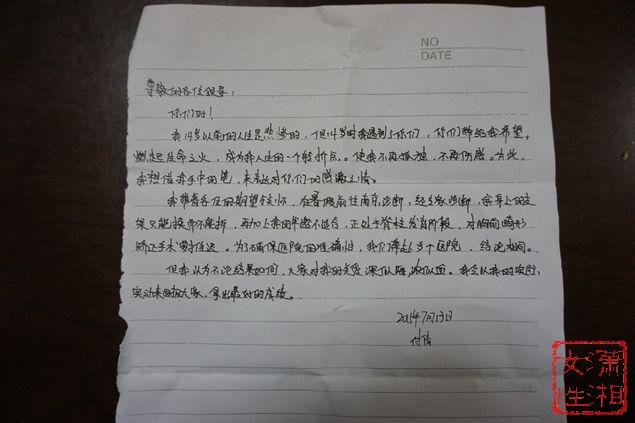 NO
DATE
尊敬的各位领导：
你们好！
我14岁以前的人生是悲惨的，但14岁时我遇到了你们，你们带给我希望，
燃起生命之火，成为我人生的一个转折点。使我不再孤独，不再伤感。为此，
我想借我手中的笔，来表达对你们的感激之情。
我带着各位的期望与关怀，在暑假前往南京诊断，经专家诊断，我身上的支
架只能换而不能拆，再加上我的年龄不适合，正处于脊柱发育阶段，对胸前畸形
矫正手术需往迟。为了确保医院的准确性，我们奔赴多个医院，结论相同。
但我认为不论结果如何，大家对我的关爱深似海，浓似血。我会以我的实际
实动来回报大家，拿出最好的成绩。
7月13日
付倩
潇湘
女生